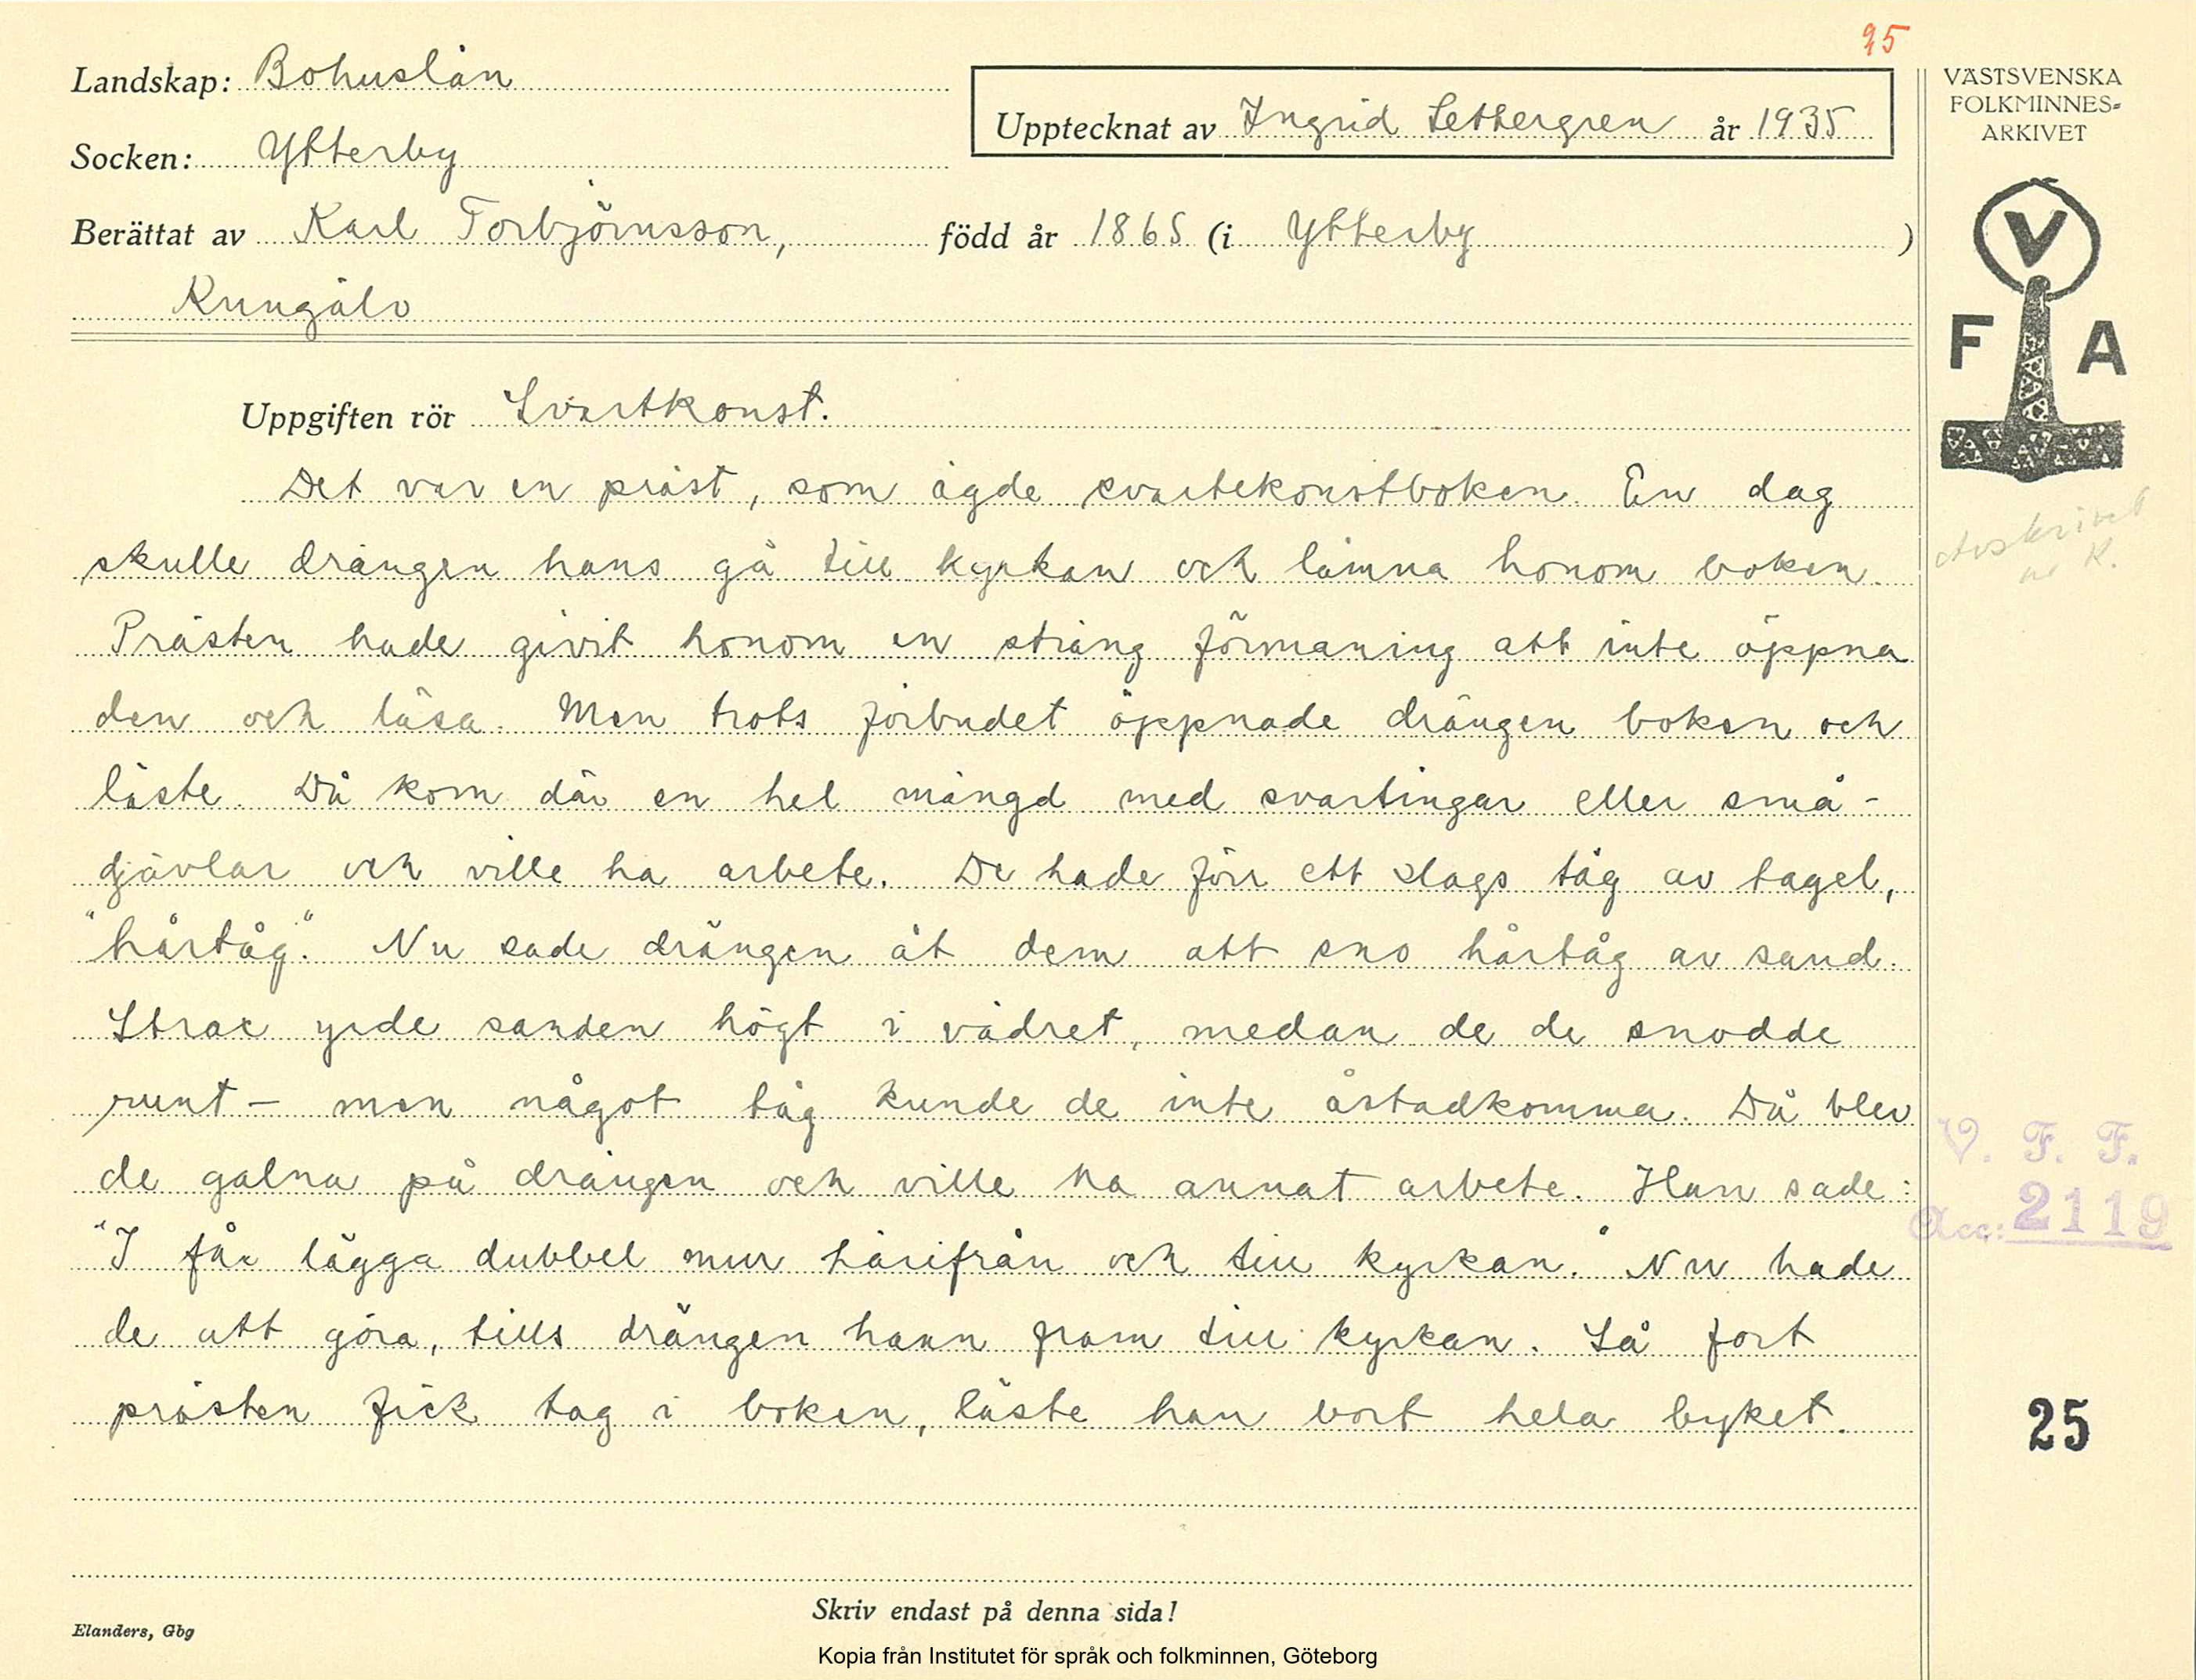 25
Landskap: Bohuslän
Upptecknat av Ingrid Settergren år 1935
Socken: Ytterby
Berättat av Karl Torbjörnsson, född år 1865 (i Ytterby )
Kungälv
VÄSTSVENSKA
FOLKMINNES-
ARKIVET
V
F A
Uppgiften rör Svartkonst.
Det var en präst, som ägde svartekonstboken. En dag
skulle drängen hans gå till kyrkan och lämna honom boken.
Prästen hade givit honom en sträng förmaning att inte öppna
den och läsa. Men trots förbudet öppnade drängen boken och
läste. Då kom där en hel mängd med svartingar eller små-
djävlar och ville ha arbete. De hade förr ett slags tåg av tagel,
"hårtåg". Nu sade drängen åt dem att sno hårtåg av sand.
Strax yrde sanden högt i vädret, medan de de snodde
runt – men något tåg kunde de inte åstadkomma. Då blev
de galna på drängen och ville ha annat arbete. Han sade:
"I får lägga dubbel mur härifrån och till kyrkan." Nu hade
de att göra, tills drängen hann fram till kyrkan. Så fort
prästen fick tag i boken, läste han bort hela byket.
Avskrivet
K.
V. F. F.
Acc: 2119
25
Skriv endast på denna sida!
Elanders, Gbg
Kopia från Institutet för språk och folkminnen, Göteborg